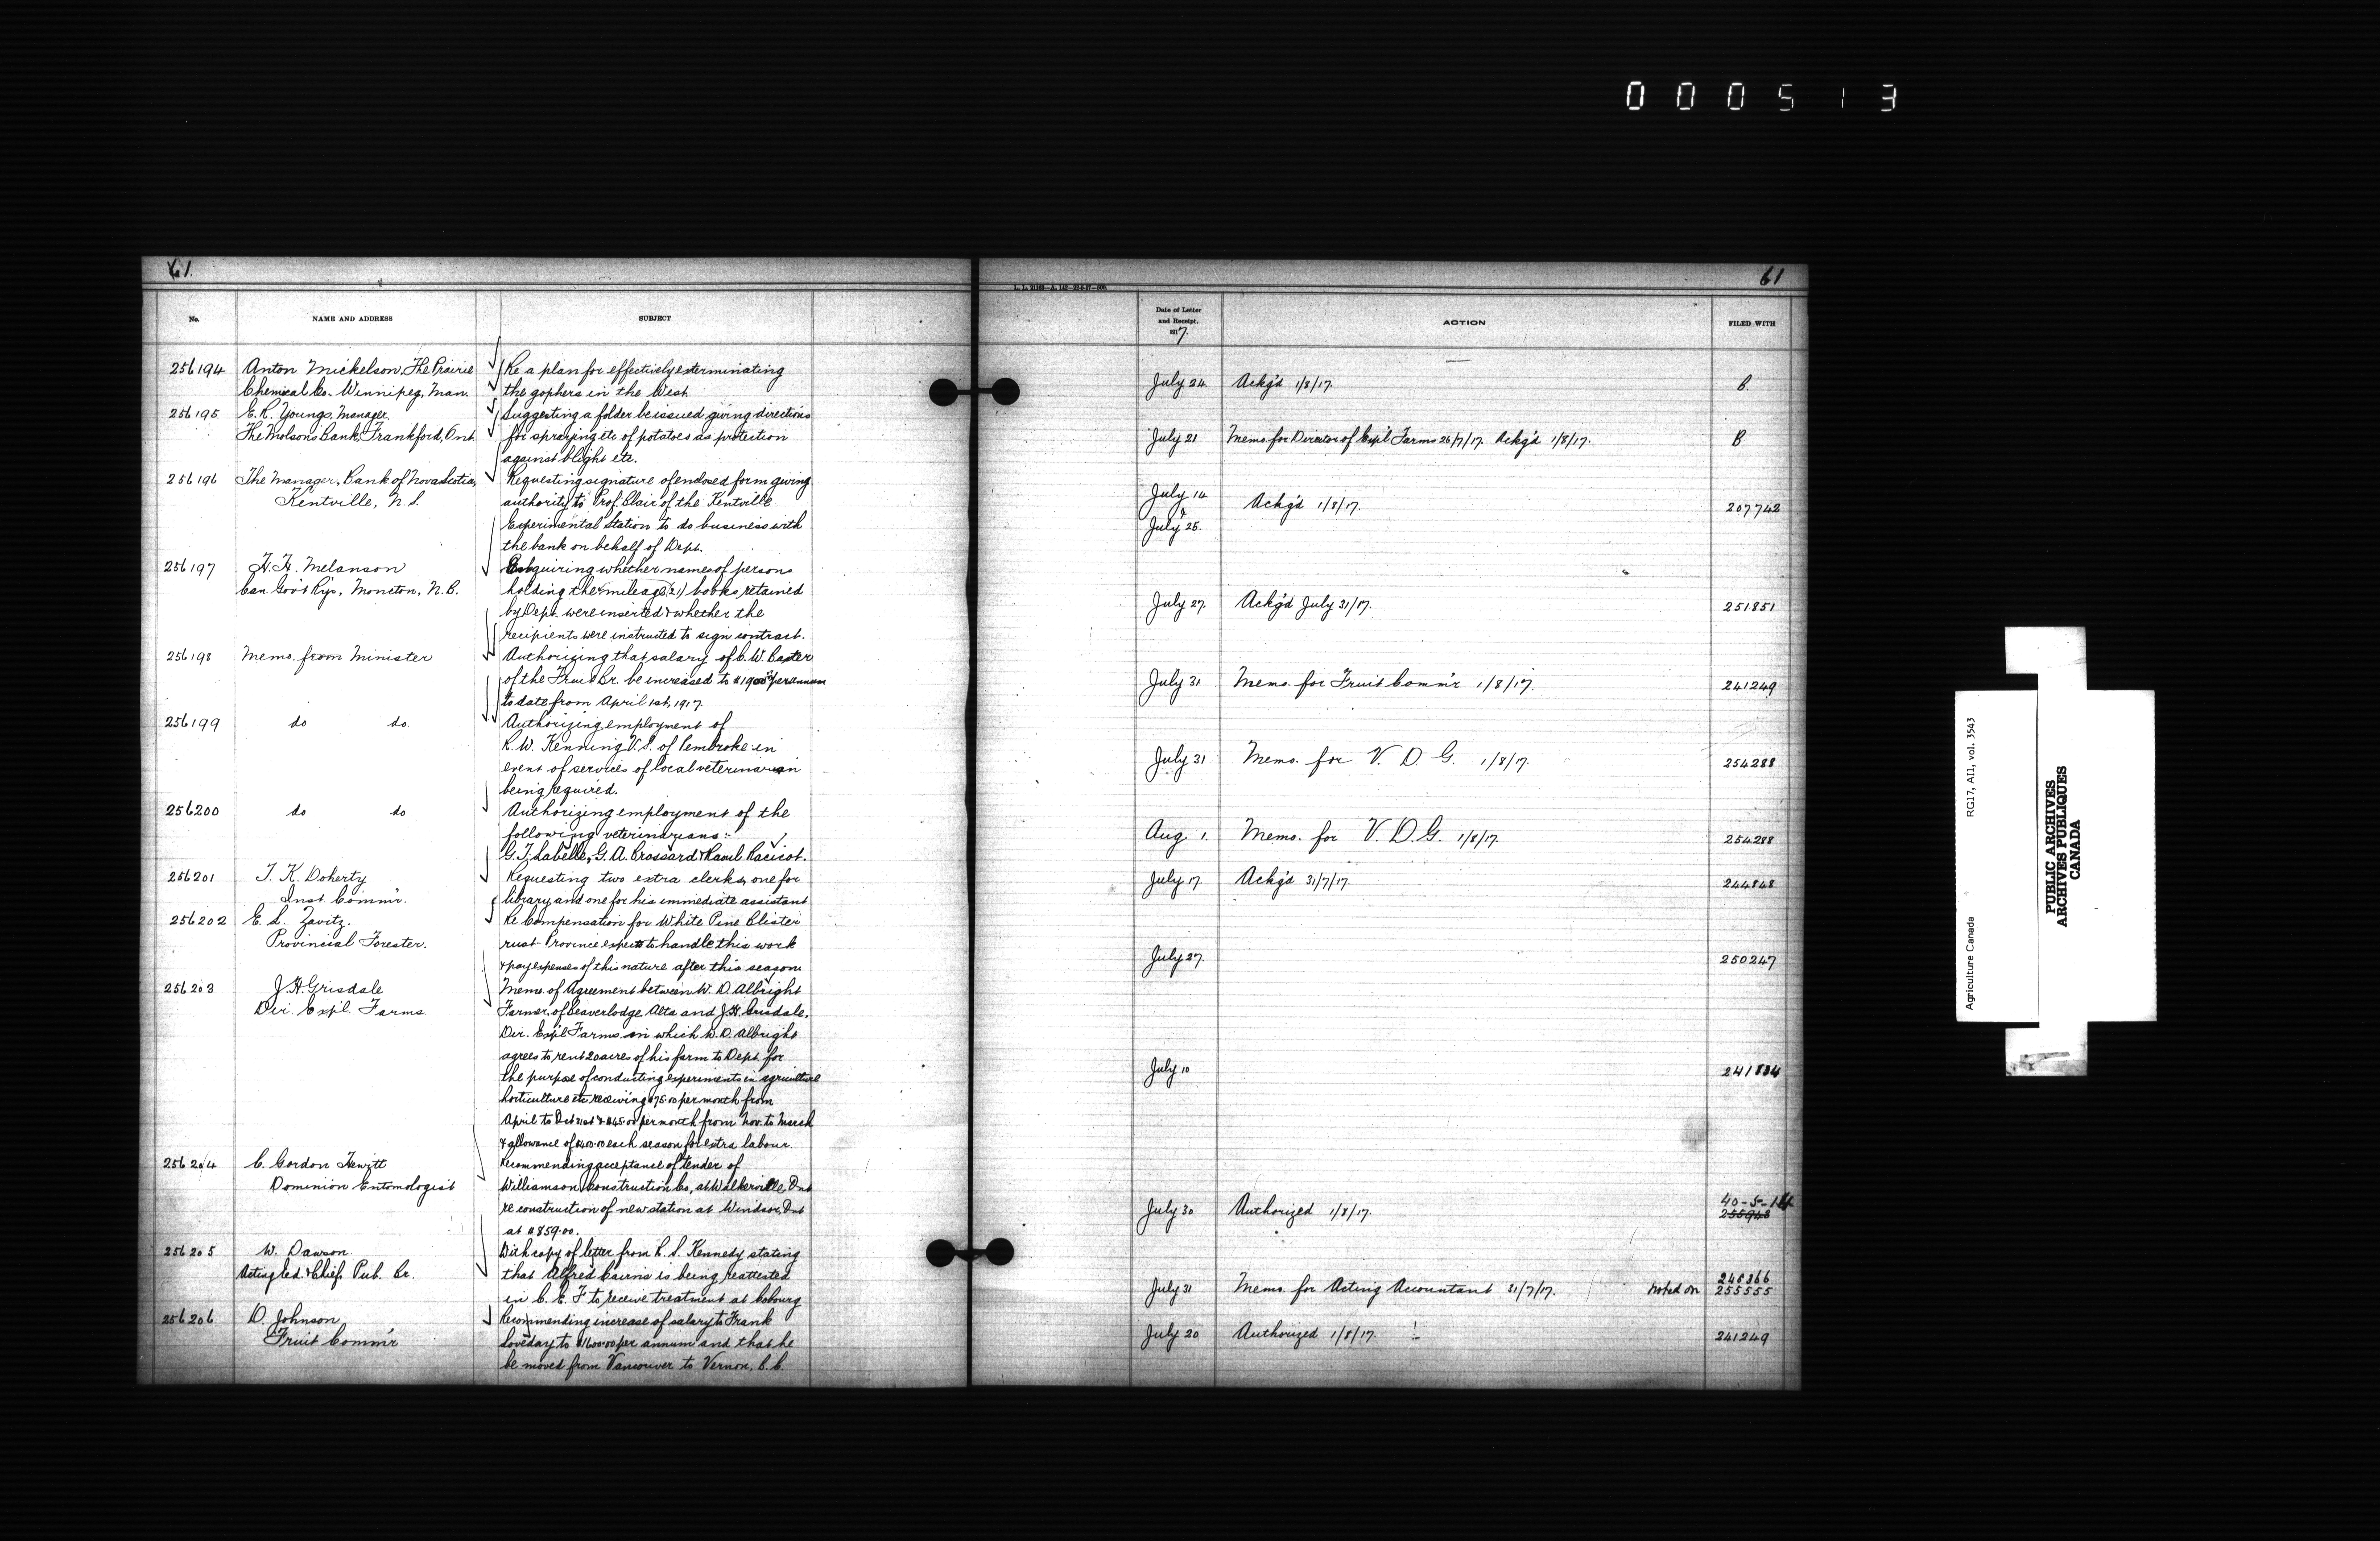 000513
61.
No.
NAME AND ADDRESS
SUBJECT
256194
Anton Mickelson, The Prairie
Chemical Co. Winnipeg, Man.
Re a plan for effectively exterminating
the gophers in the West.
256195
E. R. Youngs, Manager
The Molsons Bank, Frankford, Ont.
Suggesting a folder be issued giving directions
for spraying etc of potatoes as protection
against blight etc.
256196
The Manager, Bank of Nova Scotia,
Kentville, N.S.
Requesting signature of enclosed form giving
authority to Prof. Blair of the Kentville
Experimental Station to do business with
the bank on behalf of Dept.
256197
H. H. Melanson
Can. Gov't Rys, Moncton, N.B.
Enquiring whether names of persons
holding the mileage (21) books retained
by Dept. were inserted & whether the
recipients were instructed to sign contract.
256198
Memo. from Minister
Authorizing that salary of C. W. Baxter
of the Fruit Br. be increased to $1900.00 per annum
to date from April 1st, 1917.
256199
do do.
Authorizing employment of
R. W. Kenning V.S. of Pembroke in
event of services of local veterinarian
being required.
256200
do do
Authorizing employment of the
following veterinarians:-
G. T. Labelle, G. A. Brossard & Raoul Racicot.
256201
T. K. Doherty
Inst. Comm'r.
Requesting two extra clerks, one for
library and one for his immediate assistant
256202
E. S. Zavitz.
Provincial Forester.
Re Compensation for White Pine Blister
rust - Province expects to handle this work
& pay expenses of this nature after this season
256203
J. H. Grisdale
Dir. Exp'l. Farms
Memo. of Agreement between W. D. Albright
Farmer, of Beaverlodge Alta and J. H. Grisdale,
Dir. Exp'l Farms. in which W. D. Albright
agrees to rent 20 acres of his farm to Dept. for
the purpose of conducting experiments in agriculture
horticulture etc receiving $75.00 per month from
April to Oct 31st & $45.00 per month from Nov. to March
& allowance of $400.00 each season for extra labour.
256204
C. Gordon Hewitt
Dominion Entomologist
Recommending acceptance of tender of
Williamson Construction Co, at Walkerville, Ont
re construction of new station at Windsor, Ont
at $859.00.
256205
W. Dawson
Acting Ed. & Chief, Pub. Br.
With copy of letter from L. S. Kennedy stating
that Alfred Cairns is being reattested
in C. E. F to receive treatment at Cobourg
256206
D. Johnson
Fruit Comm'r
Recommending increase of salary to Frank
Loveday to $1600.00 per annum and that he
be moved from Vancouver to Vernon, B.C.
61
Date of Letter
and Receipt,
1917.
ACTION
FILED WITH
July 24 Ackg'd 1/8/17. B
July 21 Memo. for Director of Exp'l Farms 26/7/17. Ackg'd 1/8/17. B
July 14
&
July 25.
Ackg'd 1/8/17. 207742
July 27. Ackg'd July 31/17. 251851
July 31 Memo. for Fruit Comm'r 1/8/17. 241249
July 31 Memo. for V. D. G. 1/8/17. 254288
Aug. 1. Memo. for V. D. G. 1/8/17. 254288
July 17. Ackg'd 31/7/17. 244848
July 27. 250247
July 10 241834
40-5-14
July 30 Authorized 1/8/17. 255943
246366
July 31 Memo. for Acting Accountant 31/7/17. noted on 255555
July 20 Authorized 1/8/17. 241249
Agriculture Canada RG17, AII, vol. 3543
PUBLIC ARCHIVES
ARCHIVES PUBLIQUES
CANADA